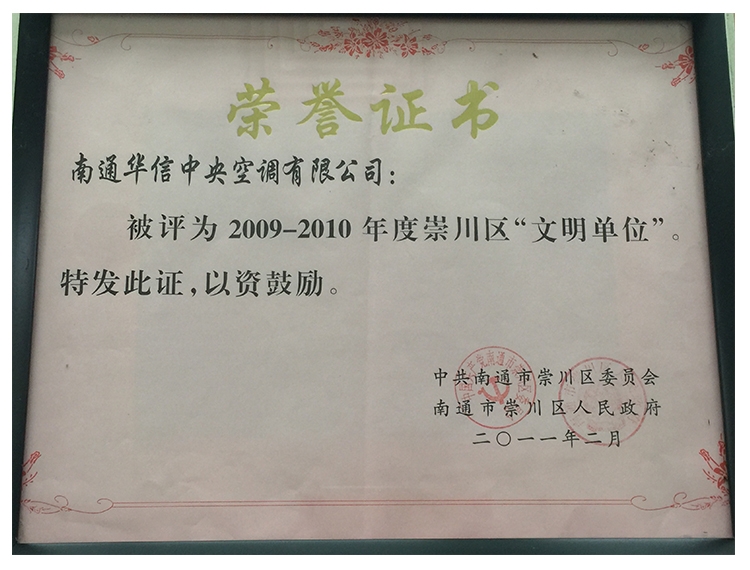 荣誉证书
南通华信中央空调有限公司：
被评为 2009-2010 年度崇川区“文明单位”。
特发此证，以资鼓励。
中共南通市崇川区委员会
南通市崇川区人民政府
二〇一一年二月